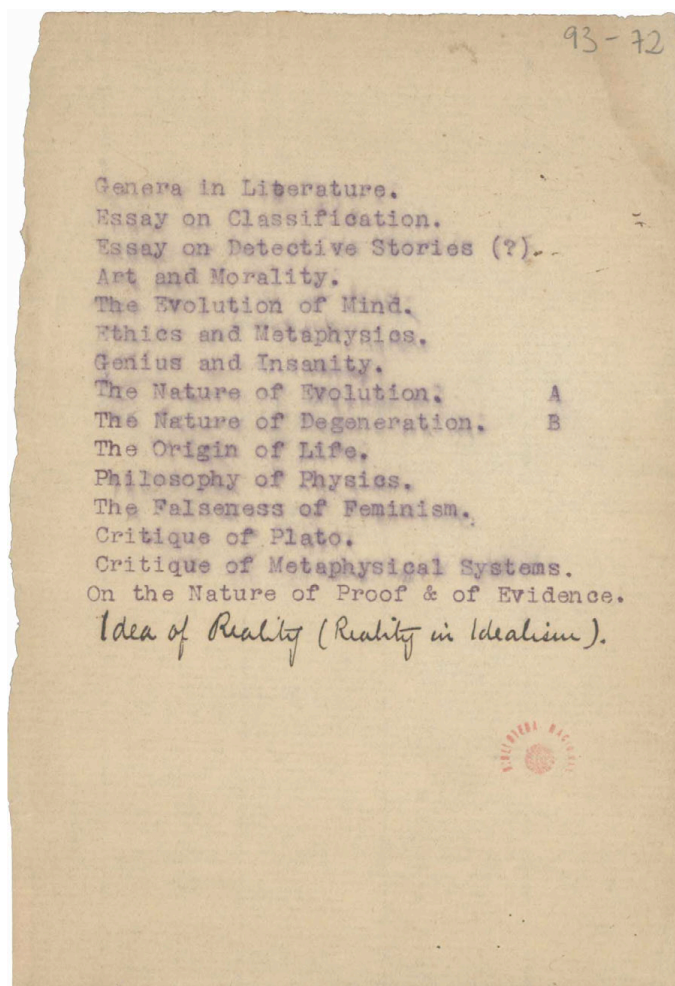 93-72
Genera in Literature.
Essay on Classification.
Essay on Detective Stories (?).
Art and Morality.
The Evolution of Mind.
Ethics and Metaphysics.
Genius and Insanity.
The Nature of Evolution. A
The Nature of Degeneration. B
The Origin of Life.
Philosophy of Physics.
The Falseness of Feminism.
Critique of Plato.
Critique of Metaphysical Systems.
On the Nature of Proof & of Evidence.
Idea of Reality (Reality in Idealism).
BIBLIOTECA NACIONAL